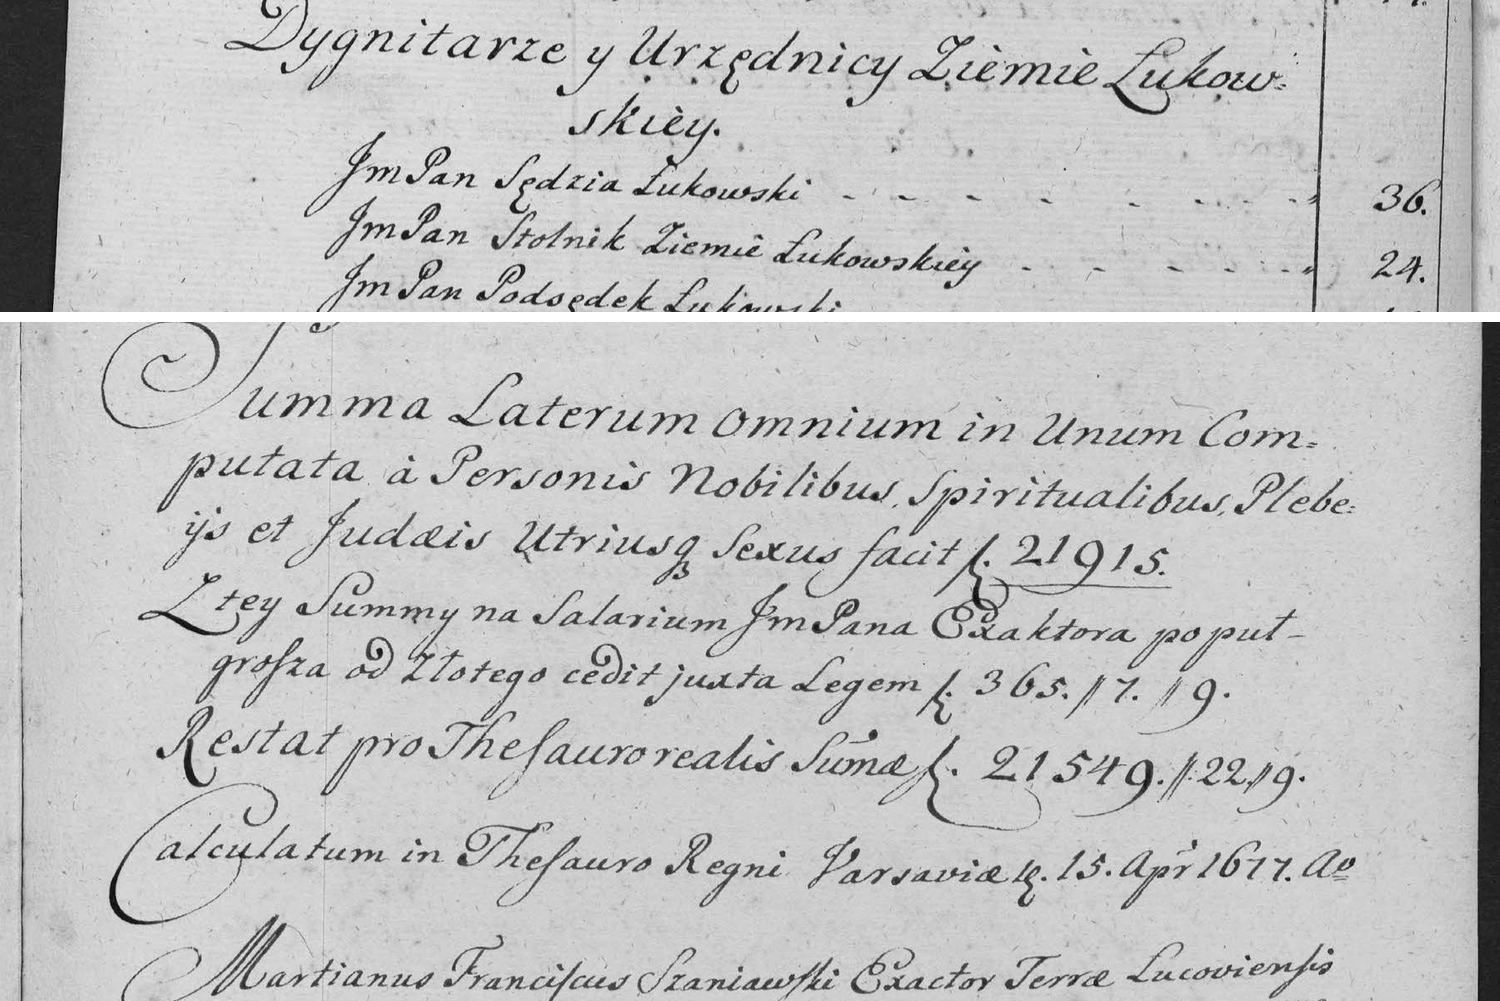 Dygnitarze y Urzędnicy Ziemie Łukow=
skiey.
JmPan Sędzia Łukowski - - - - - - - - 36.
JmPan Stolnik Ziemie Łukowskiey - - - - - - 24.
JmPan Podsędek Łukowski
Summa Laterum omnium in Unum Com=
putata à Personis Nobilibus, Spiritualibus, Plebe=
ijs et Judæis Utriusqꝫ Sexus facit f. 21915.
Z tey Summy na Salarium JmPana Exaktora po puł-
grosza od Złotego cedit juxta Legem f. 365.//7.//9.
Restat pro Thesauro realis Sum̄æ f. 21549.//22.//9.
Calculatum in Thesauro Regni Varsaviæ 15. Apr 1677. Ao
Martianus Franciscus Szaniawski Exactor Terræ Lucoviensis